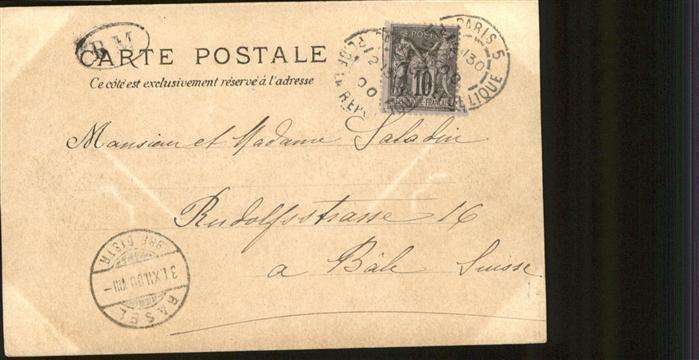 B M
CARTE POSTALE
Ce côté est exclusivement réservé à l'adresse
PARIS 5
10
Monsieur et Madame Saladin
Rudolfsstrasse 16
a Bâle Suisse
BRF. DISTR.
31.XII.00.VIII
BASEL